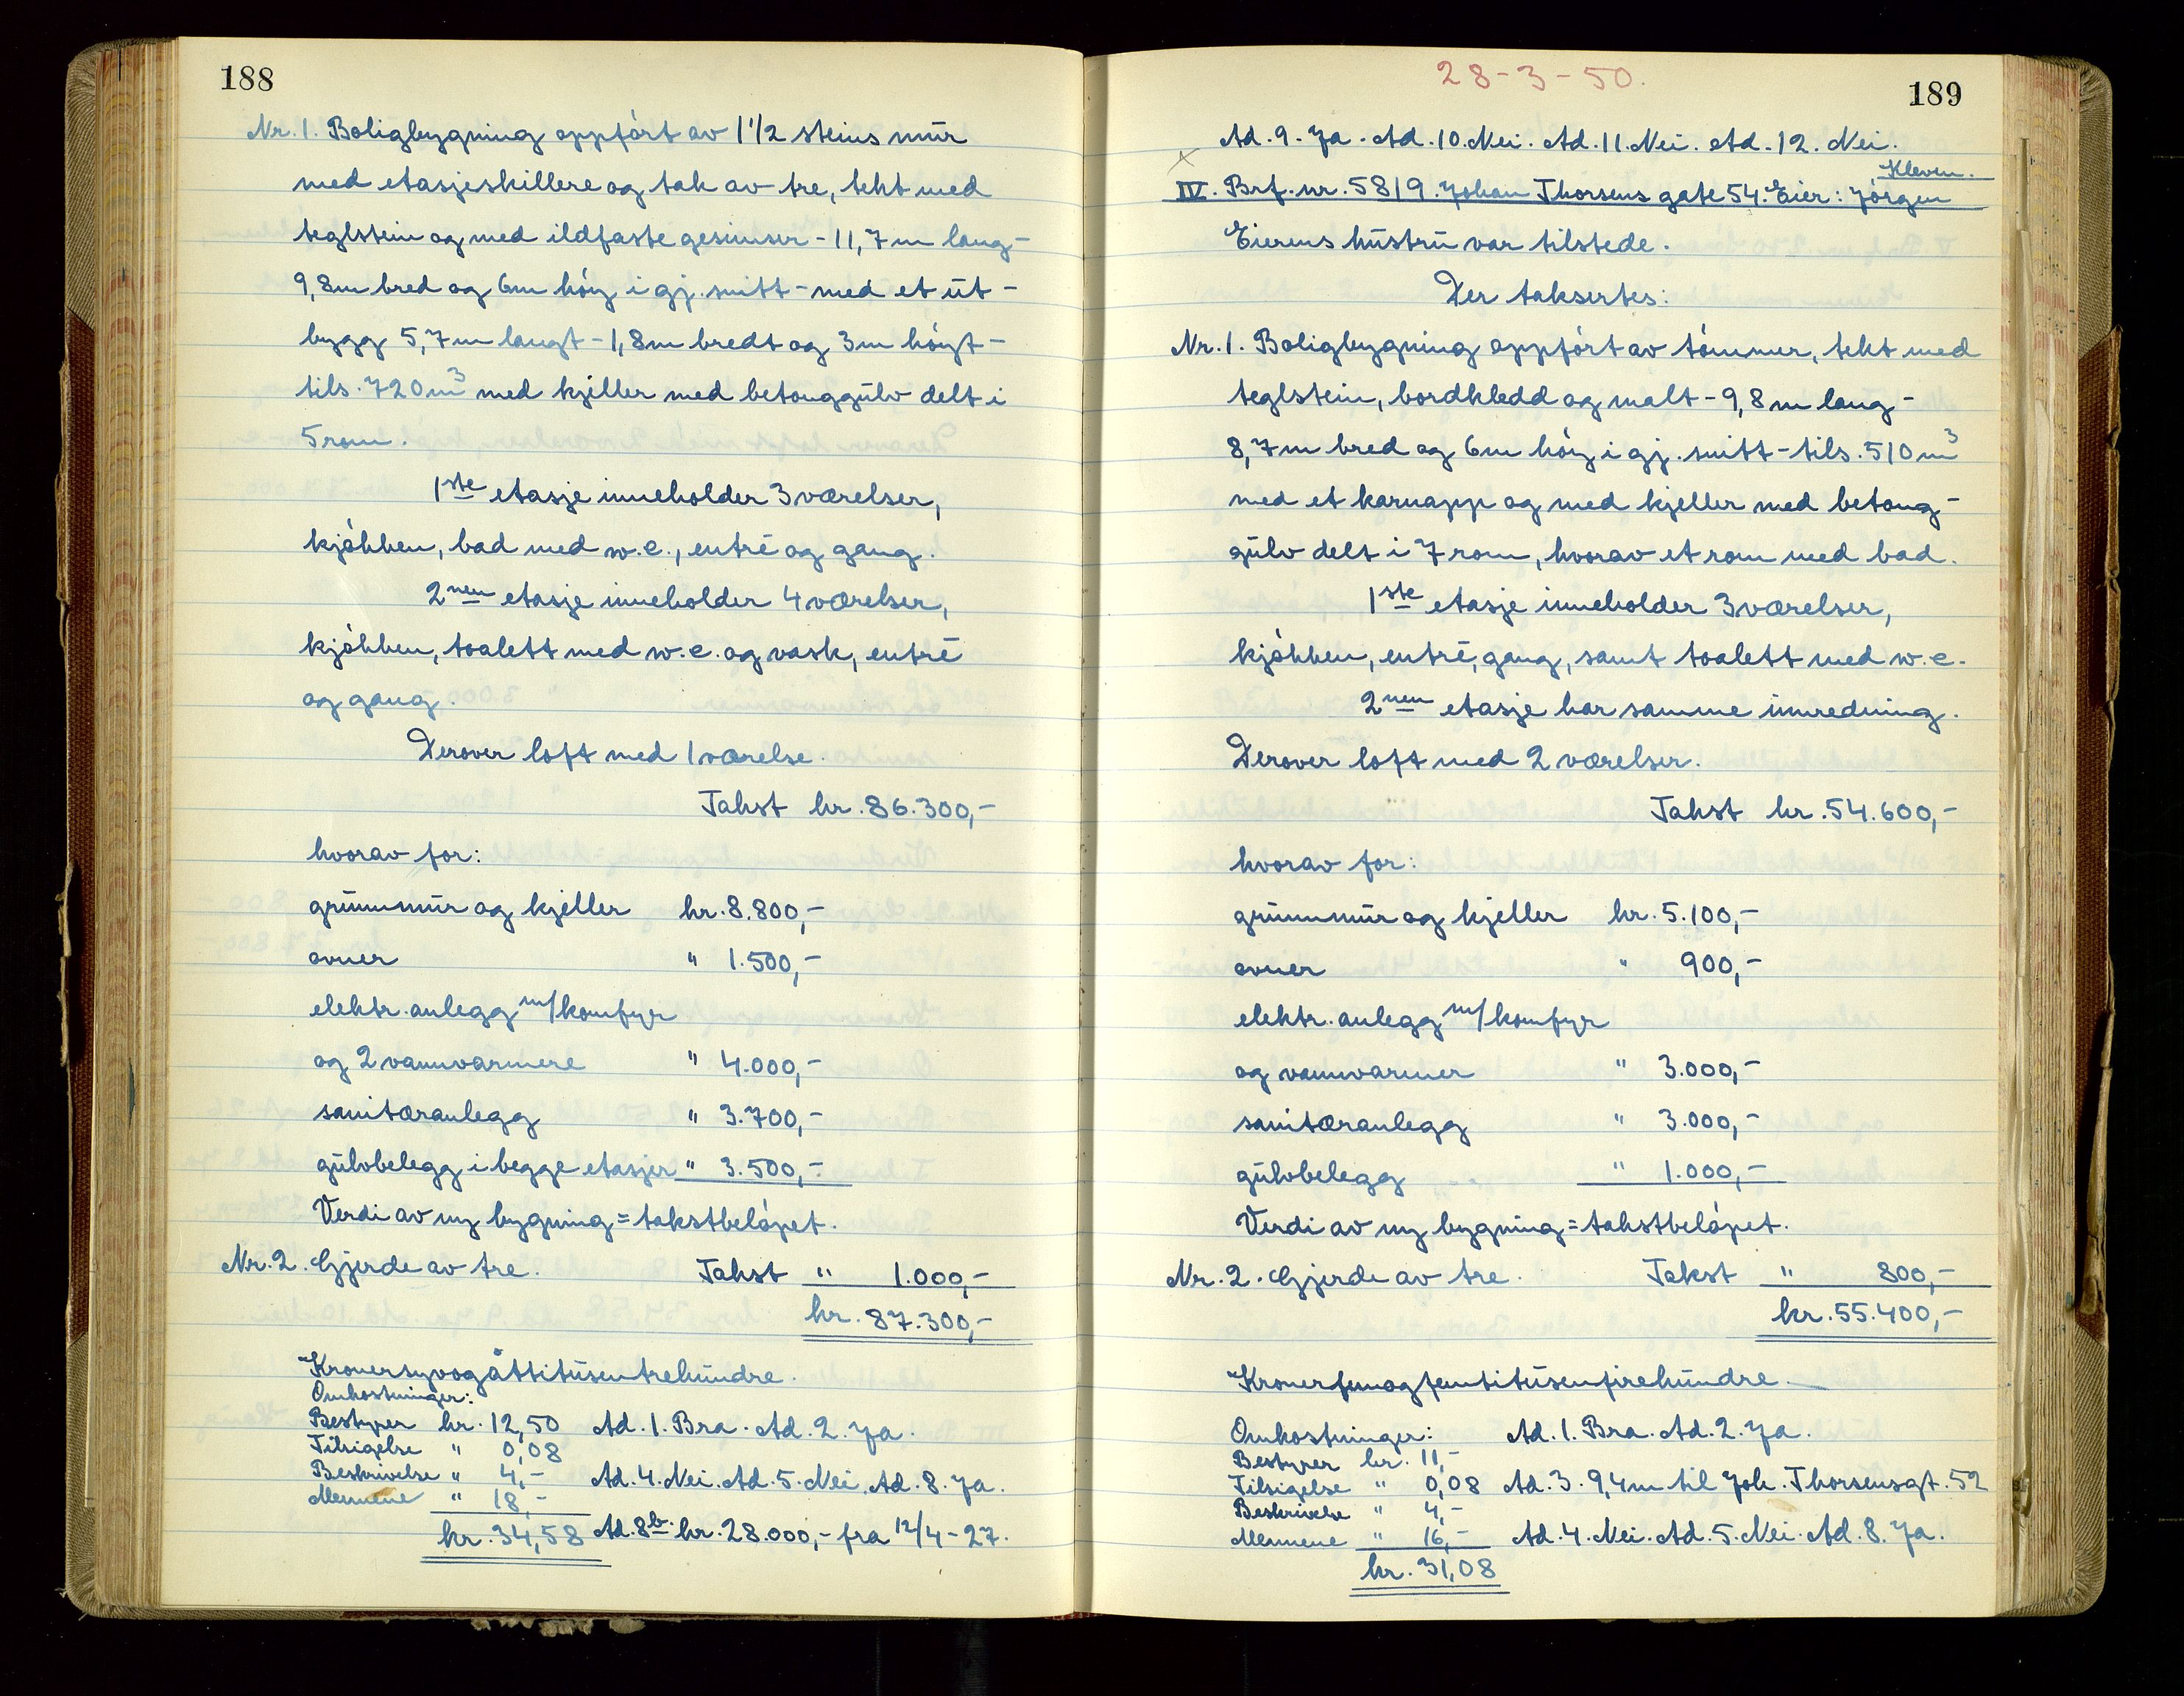 188
Nr. 1. Boligbygning oppført av 1 1/2 steins mur
med etasjeskillere og tak av tre, tekt med
teglstein og med ildfaste gesimser - 11,7 m lang -
9,8 m bred og 6 m høy i gj. snitt - med et ut-
bygg 5,7 m langt - 1,8 m bredt og 3 m høyt -
tils. 720 m³ med kjeller med betonggulv delt i
5 rom.
1ste etasje inneholder 3 værelser,
kjøkken, bad med w.c., entré og gang.
2nen etasje inneholder 4 værelser,
kjøkken, toalett med w.c. og vask, entré
og gang.
Derover loft med 1 værelse.
Takst kr. 86.300,-
hvorav for:
grunnmur og kjeller kr. 8.800,-
ovner " 1.500,-
elektr. anlegg m/komfyr
og 2 vannvarmere " 4.000,-
sanitæranlegg " 3.700,-
gulvbelegg i begge etasjer " 3.500,-
Verdi av ny bygning = takstbeløpet.
Nr. 2. Gjerde av tre. Takst " 1.000,-
kr. 87.300,-
Kronersyvogåttitusentrehundre.
Omkostninger:
Bestyrer kr. 12,50 Ad. 1. Bra. Ad. 2. Ja.
Tilsigelse " 0,08
Beskrivelse " 4,- Ad. 4. Nei. Ad. 5. Nei. Ad. 8. Ja.
Mennene " 18,-
kr. 34,58 Ad. 8b. kr. 28.000,- fra 12/4-27.
28-3-50.
189
Ad. 9. Ja. Ad. 10. Nei. Ad. 11. Nei. Ad. 12. Nei.
x Kleven.
IV. Brf. nr. 5819. Johan Thorsens gate 54. Eier: Jørgen
Eierens hustru var tilstede.
Der taksertes:
Nr. 1. Boligbygning oppført av tømmer, tekt med
teglstein, bordkledd og malt - 9,8 m lang -
8,7 m bred og 6 m høy i gj. snitt - tils. 510 m³
med et karnapp og med kjeller med betong-
gulv delt i 7 rom, hvorav et rom med bad.
1ste etasje inneholder 3 værelser,
kjøkken, entré, gang, samt toalett med w.c.
2nen etasje har samme innredning.
Derover loft med 2 værelser.
Takst kr. 54.600,-
hvorav for:
grunnmur og kjeller kr. 5.100,-
ovner " 900,-
elektr. anlegg m/komfyr
og vannvarmer " 3.000,-
sanitæranlegg " 3.000,-
gulvbelegg " 1.000,-
Verdi av ny bygning = takstbeløpet.
Nr. 2. Gjerde av tre. Takst " 800,-
kr. 55.400,-
Kronerfemogfemtitusenfirehundre.
Omkostninger: Ad. 1. Bra. Ad. 2. Ja.
Bestyrer kr. 11,-
Tilsigelse " 0,08 Ad. 3. 9,4 m til Joh. Thorsensgt. 52
Beskrivelse " 4,-
Mennene " 16,- Ad. 4. Nei. Ad. 5. Nei. Ad. 8. Ja.
kr. 31,08